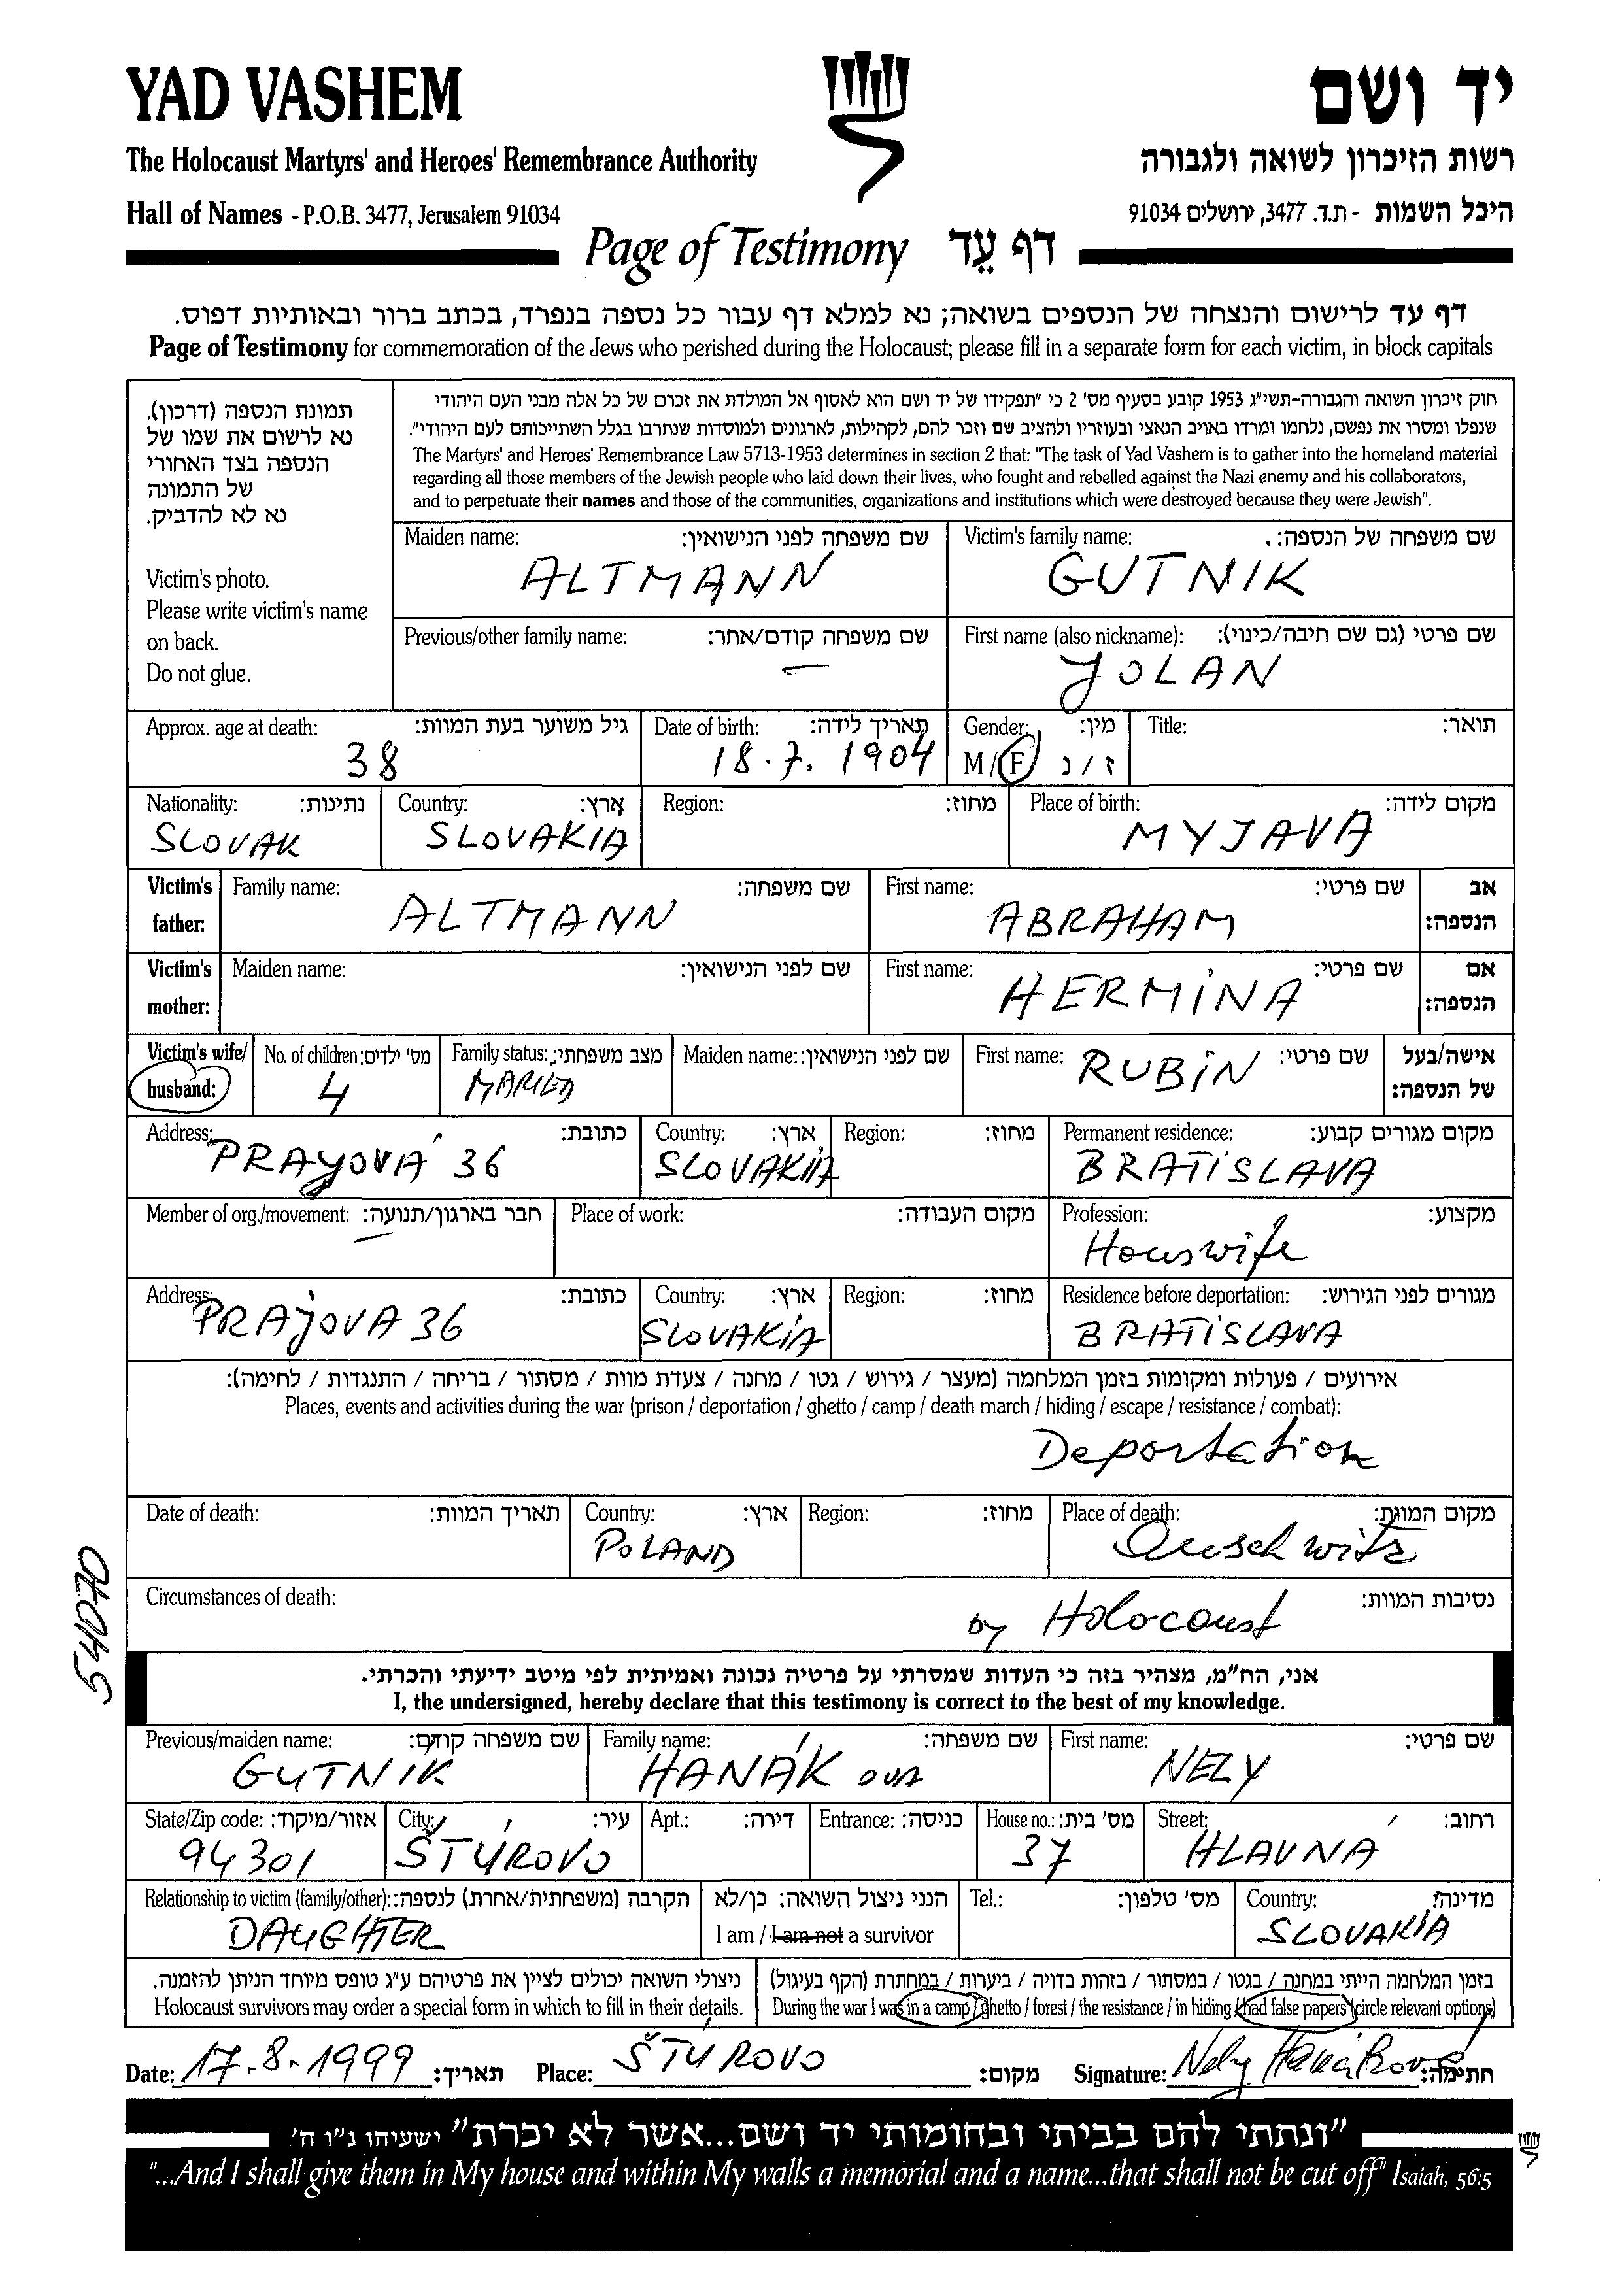 YAD VASHEM
יד ושם
The Holocaust Martyrs' and Heroes' Remembrance Authority
רשות הזיכרון לשואה ולגבורה
Hall of Names - P.O.B. 3477, Jerusalem 91034
היכל השמות - ת.ד. 3477, ירושלים 91034
Page of Testimony דף עֵד
דף עד לרישום והנצחה של הנספים בשואה; נא למלא דף עבור כל נספה בנפרד, בכתב ברור ובאותיות דפוס.
Page of Testimony for commemoration of the Jews who perished during the Holocaust; please fill in a separate form for each victim, in block capitals
תמונת הנספה (דרכון).
נא לרשום את שמו של
הנספה בצד האחורי
של התמונה
נא לא להדביק.
Victim's photo.
Please write victim's name
on back.
Do not glue.
חוק זיכרון השואה והגבורה-תשי"ג 1953 קובע בסעיף מס' 2 כי "תפקידו של יד ושם הוא לאסוף אל המולדת את זכרם של כל אלה מבני העם היהודי
שנפלו ומסרו את נפשם, נלחמו ומרדו באויב הנאצי ובעוזריו ולהציב שם וזכר להם, לקהילות, לארגונים ולמוסדות שנחרבו בגלל השתייכותם לעם היהודי".
The Martyrs' and Heroes' Remembrance Law 5713-1953 determines in section 2 that: "The task of Yad Vashem is to gather into the homeland material
regarding all those members of the Jewish people who laid down their lives, who fought and rebelled against the Nazi enemy and his collaborators,
and to perpetuate their names and those of the communities, organizations and institutions which were destroyed because they were Jewish".
Maiden name: שם משפחה לפני הנישואין:
ALTMANN
Victim's family name: שם משפחה של הנספה:
GUTNIK
Previous/other family name: שם משפחה קודם/אחר:
—
First name (also nickname): שם פרטי (גם שם חיבה/כינוי):
JOLAN
Approx. age at death: גיל משוער בעת המוות:
38
Date of birth: תאריך לידה:
18.7.1904
Gender: מין:
M / F ז / נ
Title: תואר:
Nationality: נתינות:
SLOVAK
Country: ארץ:
SLOVAKIA
Region: מחוז:
Place of birth: מקום לידה:
MYJAVA
Victim's
father:
Family name: שם משפחה:
ALTMANN
First name: שם פרטי:
ABRAHAM
אב
הנספה:
Victim's
mother:
Maiden name: שם לפני הנישואין:
First name: שם פרטי:
HERMINA
אם
הנספה:
Victim's wife/
husband:
No. of children: מס' ילדים:
4
Family status: מצב משפחתי:
MARIED
Maiden name: שם לפני הנישואין:
First name: שם פרטי:
RUBIN
אישה/בעל
של הנספה:
Address: כתובת:
PRAYOVÁ 36
Country: ארץ:
SLOVAKIA
Region: מחוז:
Permanent residence: מקום מגורים קבוע:
BRATISLAVA
Member of org./movement: חבר בארגון/תנועה:
—
Place of work: מקום העבודה:
Profession: מקצוע:
Houswife
Address: כתובת:
PRAJOVA 36
Country: ארץ:
SLOVAKIA
Region: מחוז:
Residence before deportation: מגורים לפני הגירוש:
BRATISLAVA
אירועים / פעולות ומקומות בזמן המלחמה (מעצר / גירוש / גטו / מחנה / צעדת מוות / מסתור / בריחה / התנגדות / לחימה):
Places, events and activities during the war (prison / deportation / ghetto / camp / death march / hiding / escape / resistance / combat):
Deportation
Date of death: תאריך המוות:
Country: ארץ:
POLAND
Region: מחוז:
Place of death: מקום המוות:
Auschwitz
Circumstances of death: נסיבות המוות:
by Holocaust
54070
אני, הח"מ, מצהיר בזה כי העדות שמסרתי על פרטיה נכונה ואמיתית לפי מיטב ידיעתי והכרתי.
I, the undersigned, hereby declare that this testimony is correct to the best of my knowledge.
Previous/maiden name: שם משפחה קודם:
GUTNIK
Family name: שם משפחה:
HANÁK ova
First name: שם פרטי:
NELY
State/Zip code: אזור/מיקוד:
94301
City: עיר:
ŠTÚROVO
Apt.: דירה:
Entrance: כניסה:
House no.: מס' בית:
37
Street: רחוב:
HLAVNÁ
Relationship to victim (family/other): הקרבה (משפחתית/אחרת) לנספה:
DAUGHTER
הנני ניצול השואה: כן/לא
I am / I am not a survivor
Tel.: מס' טלפון:
Country: מדינה:
SLOVAKIA
ניצולי השואה יכולים לציין את פרטיהם ע"ג טופס מיוחד הניתן להזמנה.
Holocaust survivors may order a special form in which to fill in their details.
בזמן המלחמה הייתי במחנה / בגטו / במסתור / בזהות בדויה / ביערות / במחתרת (הקף בעיגול)
During the war I was in a camp / ghetto / forest / the resistance / in hiding / had false papers (circle relevant option)
Date: 17.8.1999 תאריך: Place: ŠTÚROVO מקום: Signature: Nely Hanáková חתימה:
"ונתתי להם בביתי ובחומותי יד ושם...אשר לא יכרת" ישעיהו נ"ו ה'
"...And I shall give them in My house and within My walls a memorial and a name...that shall not be cut off" Isaiah, 56:5